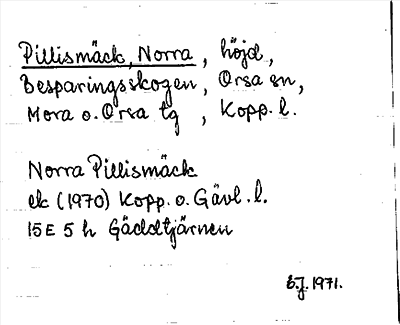 Pillismäck, Norra, höjd,
Besparingsskogen, Orsa sn,
Mora o. Orsa tg, Kopp. l.
Norra Pillismäck
ek (1970) Kopp. o. Gävl. l.
15E 5 h Gäddtjärnen
B.J. 1971.